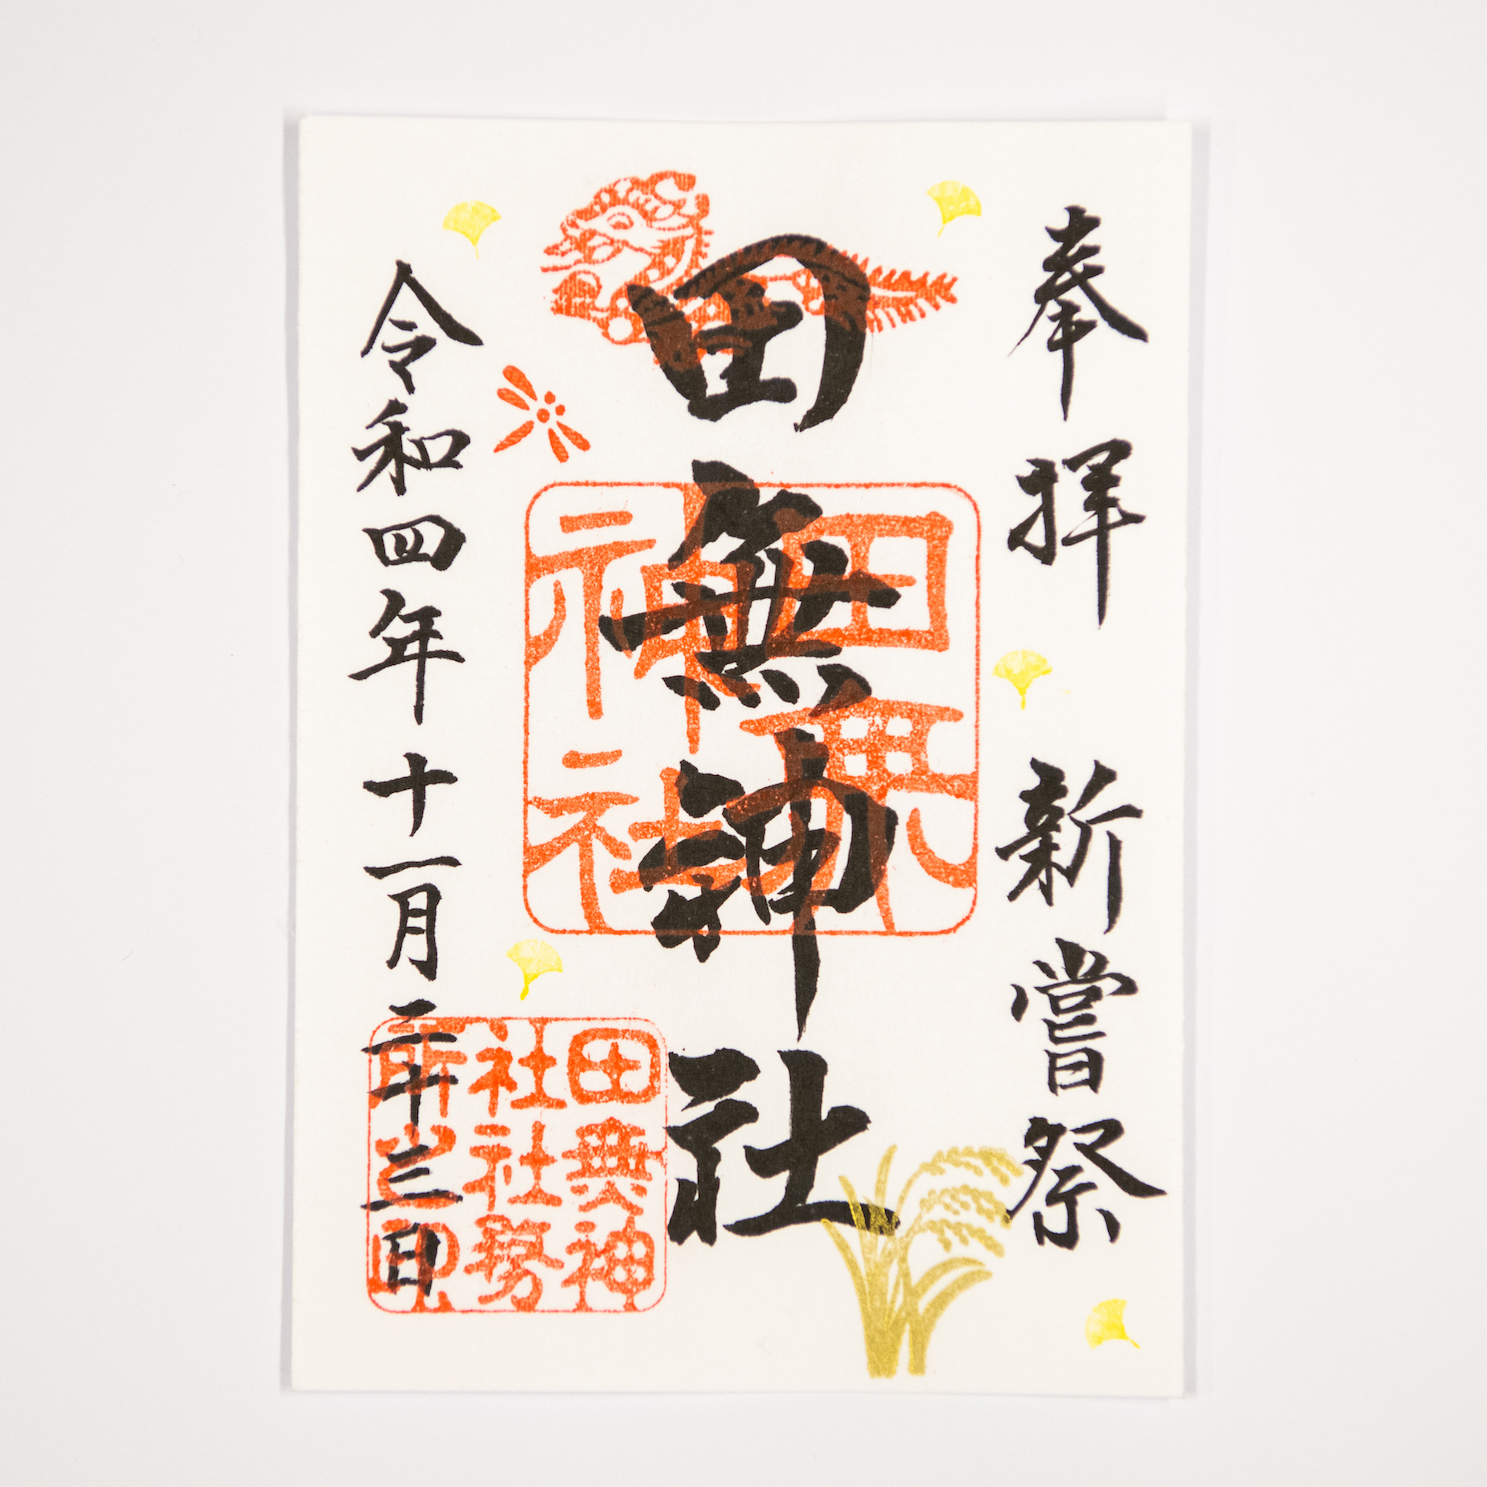 奉拝 新嘗祭
田無神社
令和四年十一月二十三日
田無
神社
田無神
社社務
所之印